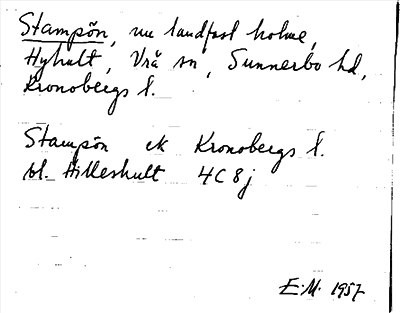 Stampön, nu landfast holme,
Hyhult, Vrå sn, Sunnerbo hd,
Kronobergs l.
Stampön ek Kronobergs l.
bl. Hilleshult 4C8j
E.M. 1957